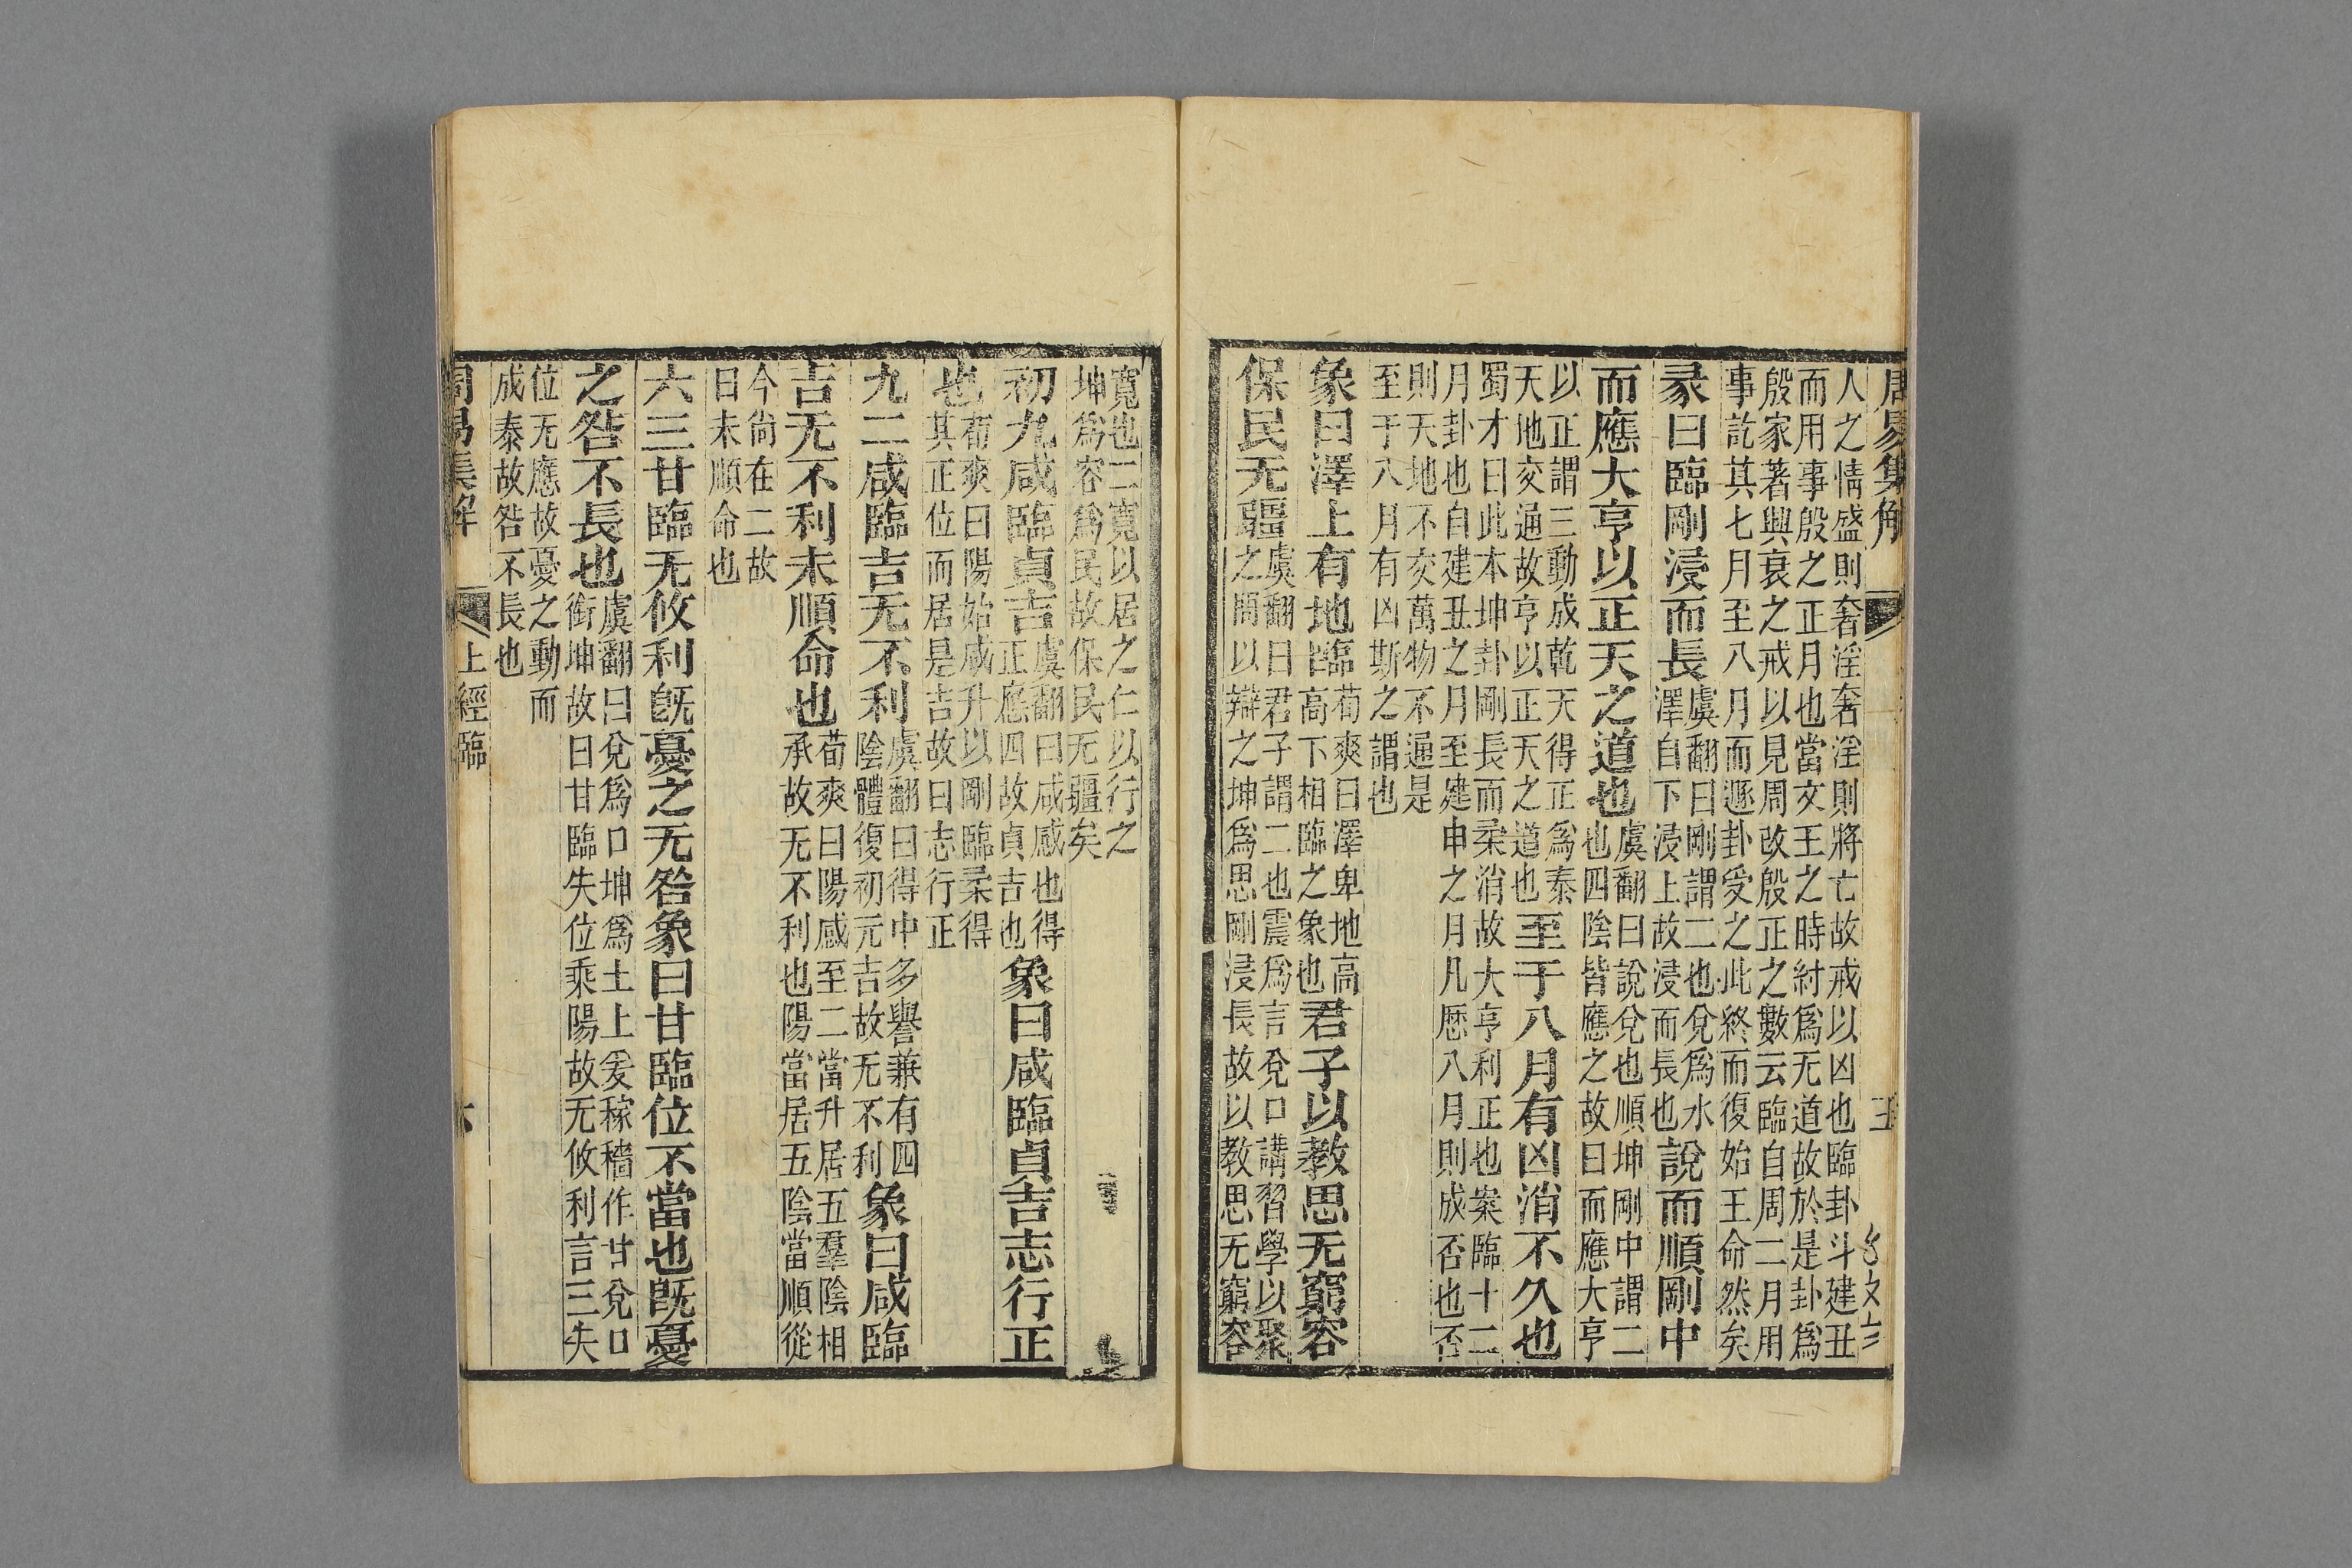 周易集解
人之情盛則奢淫奢淫則將亡故戒以凶也臨卦斗建丑
而用事殷之正月也當文王之時紂爲无道故於是卦爲
殷家著興衰之戒以見周改殷正之數云臨自周二月用
事訖其七月至八月而遯卦受之此終而復始王命然矣
彖曰臨剛浸而長虞翻曰剛謂二也兌爲水澤自下浸上故浸而長也說而順剛中
而應大亨以正天之道也虞翻曰說兌也順坤剛中謂二也四陰皆應之故曰而應大亨
以正謂三動成乾天得正爲泰天地交通故亨以正天之道也至于八月有凶消不久也
蜀才曰此本坤卦剛長而柔消故大亨利正也案臨十二
月卦也自建丑之月至建申之月凡歷八月則成否也否
則天地不交萬物不通是
至于八月有凶斯之謂也
象曰澤上有地臨荀爽曰澤卑地高高下相臨之象也君子以教思无窮容
保民无疆虞翻曰君子謂二也震爲言兌口講習學以聚之問以辯之坤爲思剛浸長故以教思无窮容
寬也二寬以居之仁以行之
坤爲容爲民故保民无疆矣
初九咸臨貞吉虞翻曰咸感也得正應四故貞吉也象曰咸臨貞吉志行正
也荀爽曰陽始咸升以剛臨柔得其正位而居是吉故曰志行正
九二咸臨吉无不利虞翻曰得中多譽兼有四陰體復初元吉故无不利象曰咸臨
吉无不利未順命也荀爽曰陽感至二當升居五羣陰相承故无不利也陽當居五陰當順從
今尚在二故
曰未順命也
六三甘臨无攸利既憂之无咎象曰甘臨位不當也既憂
之咎不長也虞翻曰兌爲口坤爲土土爰稼穡作甘兌口銜坤故曰甘臨失位乘陽故无攸利言三失
位无應故憂之動而
成泰故咎不長也
周易集解 上經臨 六